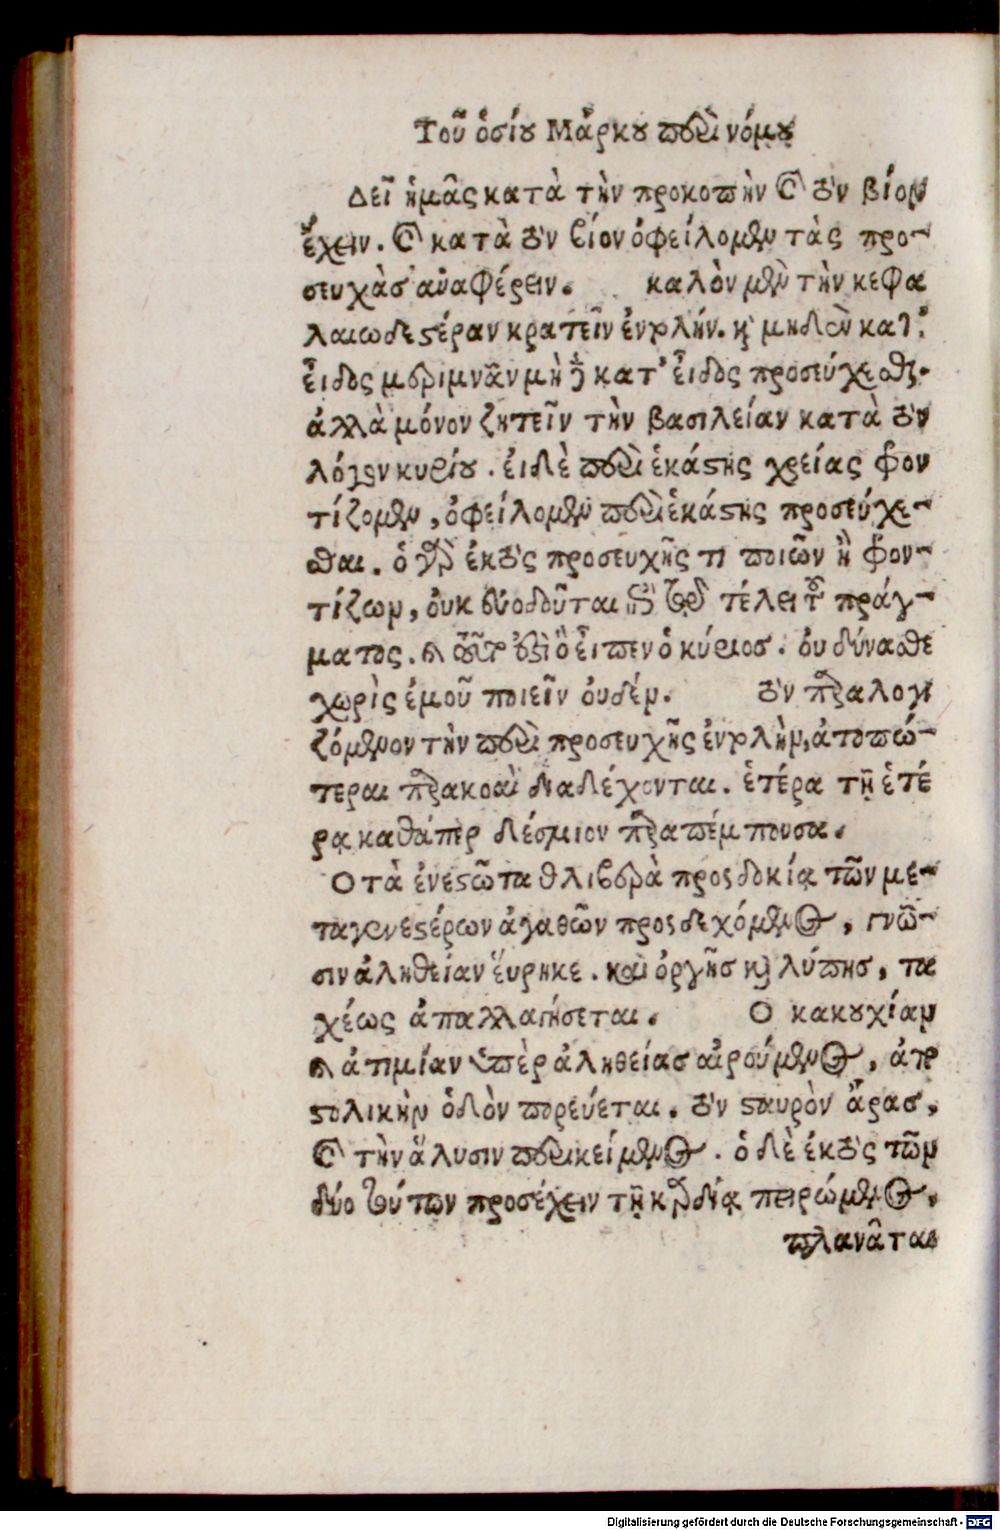 Τοῦ ὁσίου Μάρκου περὶ νόμου
Δεῖ ἡμᾶς κατὰ τὴν προκοπὴν καὶ τὸν βίον
ἔχειν. καὶ κατὰ τὸν βίον ὀφείλομεν τὰς προ-
σευχὰσ ἀναφέρειν. καλὸν μὲν τὴν κεφα
λαιωδεστέραν κρατεῖν ἐντολήν. καὶ μηδὲν κατ'
εἶδος μεριμνᾶν μὴ δὲ κατ' εἶδος προσεύχεσθαι.
ἀλλὰ μόνον ζητεῖν τὴν βασιλείαν κατὰ τὸν
λόγον κυρίου. εἰ δὲ περὶ ἑκάστης χρείας φρον
τίζομεν, ὀφείλομεν περὶ ἑκάστης προσεύχε-
σθαι. ὁ γὰρ ἐκτὸς προσευχῆς τι ποιῶν ἢ φρον-
τίζων, οὐκ εὐοδοῦται ἐπὶ τῷ τέλει τοῦ πράγ-
ματος. καὶ τοῦτό ἐστιν ὃ εἶπεν ὁ κύριοσ. οὐ δύνασθε
χωρὶς ἐμοῦ ποιεῖν οὐδέν. τὸν παραλογι
ζόμενον τὴν περὶ προσευχῆς ἐντολὴν, ἀτοπώ-
τεραι παρακοαὶ διαδέχονται. ἑτέρα τῇ ἑτέ
ρᾳ καθάπερ δέσμιον παραπέμπουσα.
Ο τὰ ἐνεστῶτα θλιβερὰ προσδοκίᾳ τῶν με-
ταγενεστέρων ἀγαθῶν προσδεχόμενος, γνῶ-
σιν ἀληθείαν εὕρηκε. καὶ ὀργῆσ καὶ λύπησ, τα
χέως ἀπαλλαγήσεται. Ο κακουχίαν
καὶ ἀτιμίαν ὑπὲρ ἀληθείασ αἱρούμενος, ἀπο
στολικὴν ὁδὸν πορεύεται. τὸν σταυρὸν ἄρασ,
καὶ τὴν ἅλυσιν περικείμενος. ὁ δὲ ἐκτὸς τῶν
δύο τούτων προσέχειν τῇ καρδίᾳ πειρώμενος,
πλανᾶται
Digitalisierung gefördert durch die Deutsche Forschungsgemeinschaft - DFG